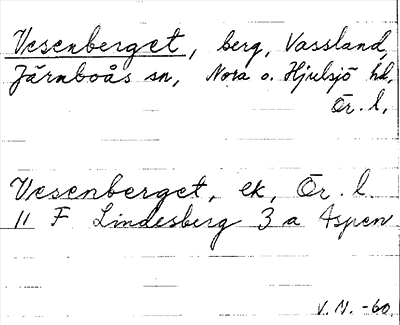 Vesenberget, berg, Vassland,
Järnboås sn, Nora o. Hjulsjö hd.
Ör. l.
Vesenberget, ek, Ör. l.
11 F Lindesberg 3 a Aspen
V. N. -60